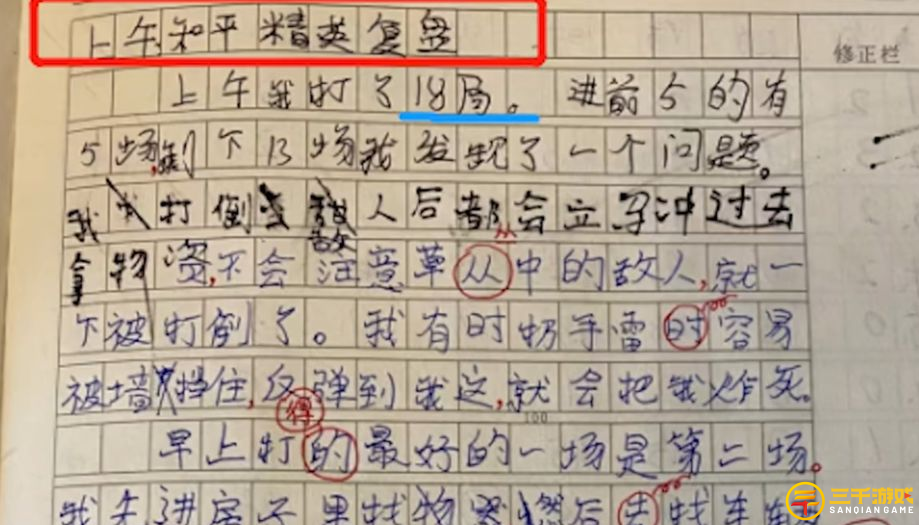 上午和平精英复盘
修正栏
上午我打了18局。进前5的有
5场,剩下13场我发现了一个问题。
我打倒敌人后都会立马冲过去
拿物资,不会注意草从中的敌人,就一
从
下被打倒了。我有时扔手雷时容易
被墙挡住,反弹到我这,就会把我炸死。
得
100
早上打的最好的一场是第二场。
我先进房子里找物资,然后去找车
三千游戏
SANQIANGAME